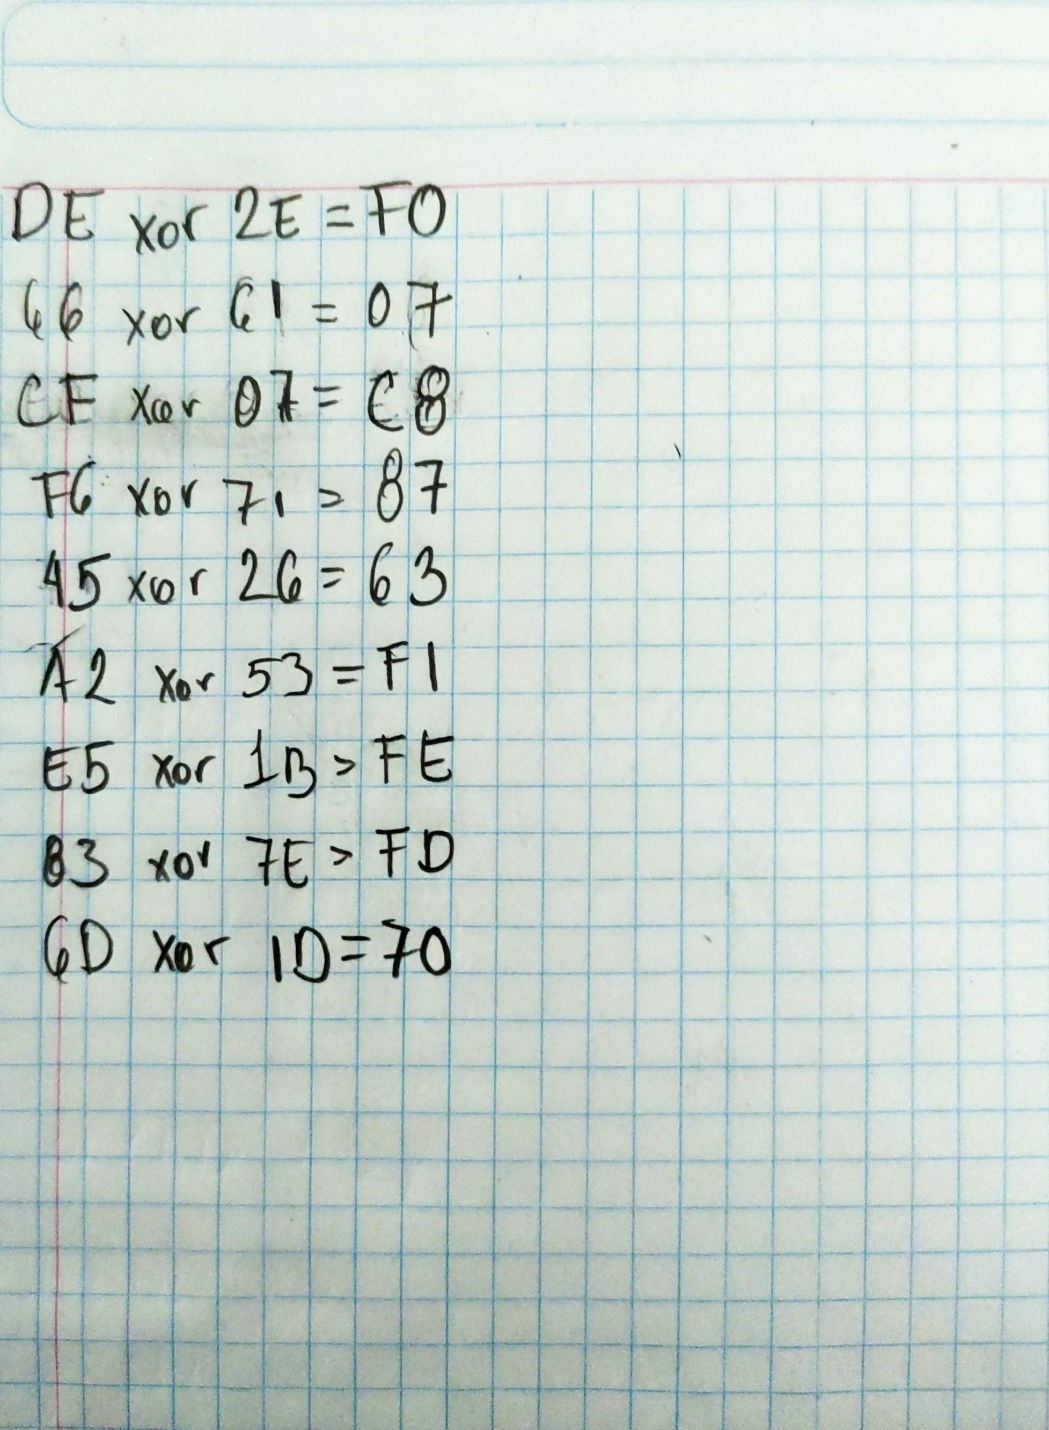 DE xor 2E = F0
66 xor 61 = 07
CF xor 07 = C8
F6 xor 71 = 87
45 xor 26 = 63
A2 xor 53 = F1
E5 xor 1B = FE
83 xor 7E = FD
6D xor 1D = 70